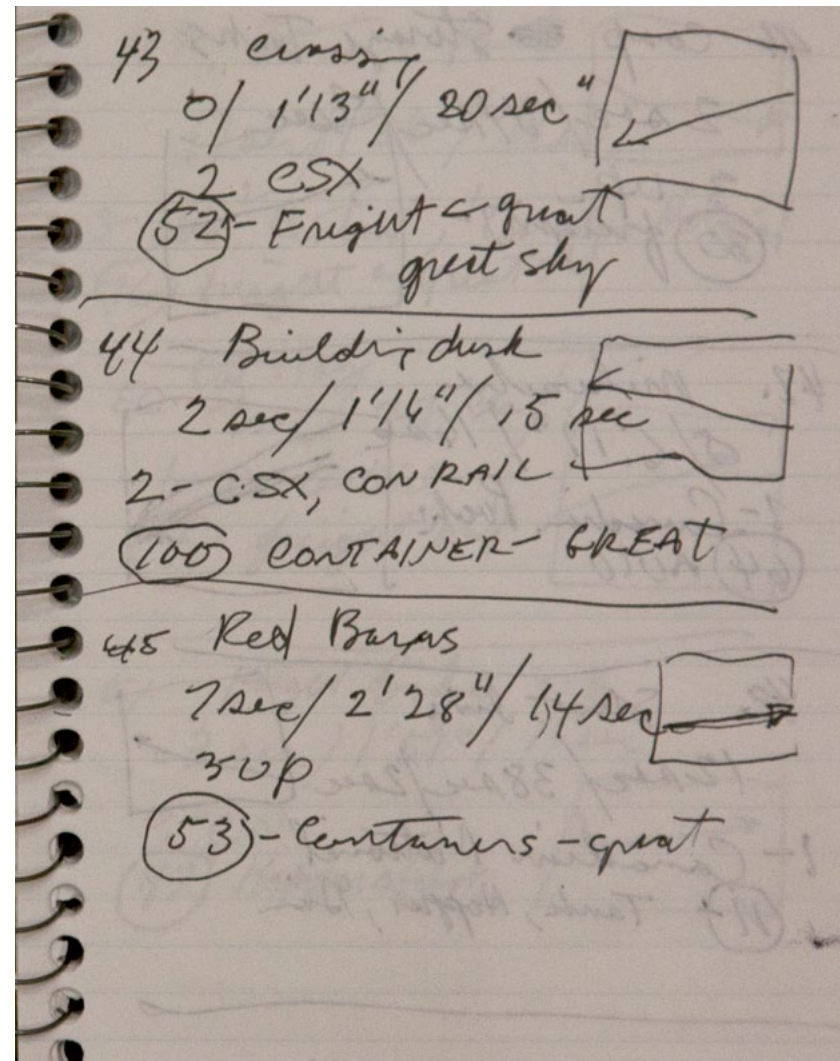 43 crossing
0/ 1'13"/ 20 sec"
2 CSX
52 - Freight - great
great sky
44 Building dusk
2 sec/ 1'14"/ 15 sec
2 - CSX, CONRAIL
100 CONTAINER - GREAT
45 Red Barns
7 sec/ 2'28"/ 14 sec
3 UP
53 - Containers - great